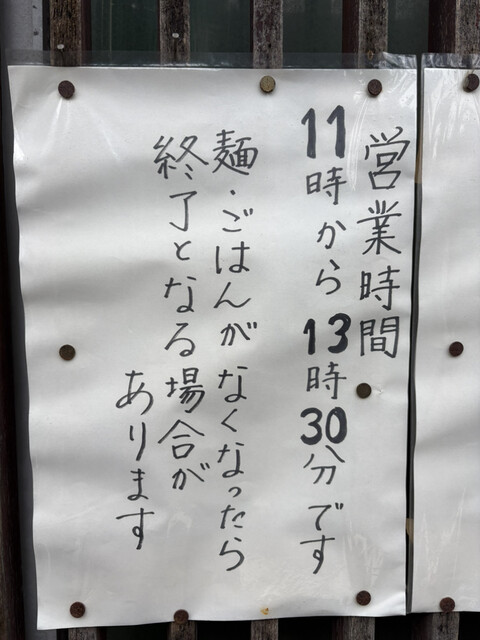 営業時間
11時から13時30分です
麺・ごはんがなくなったら
終了となる場合が
あります